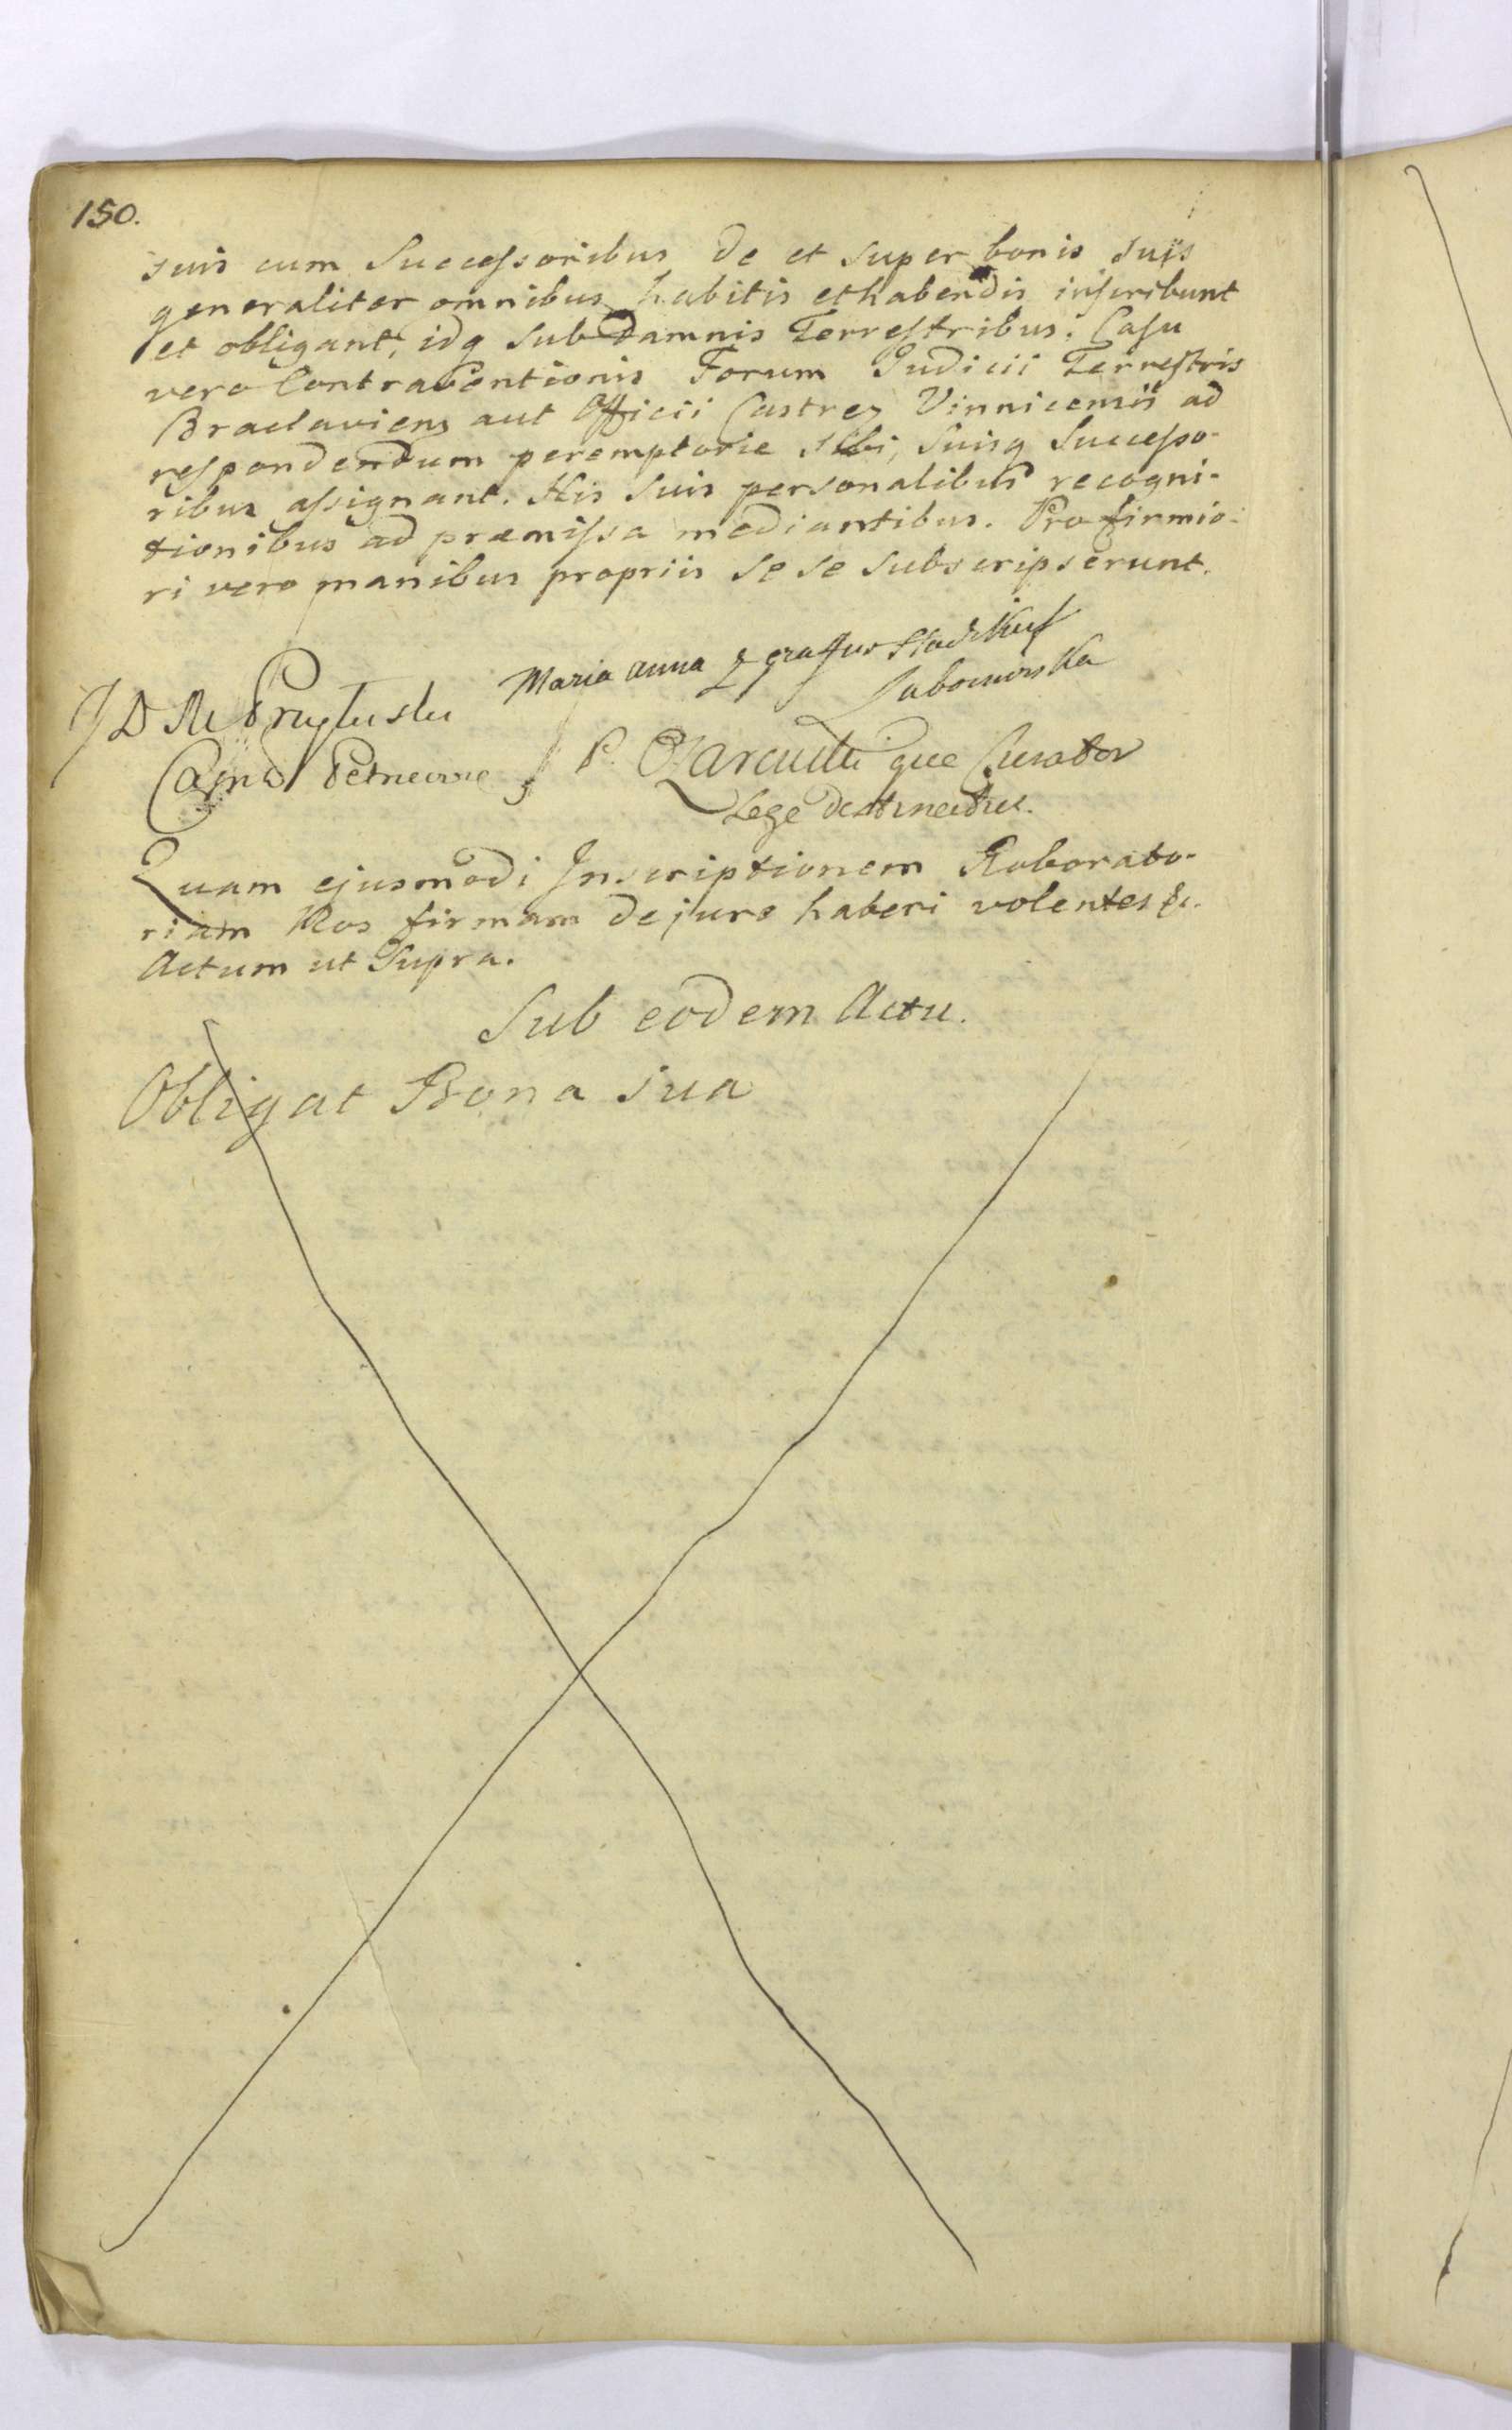 150.
suis cum Successoribus de et super bonis suis
generaliter omnibus habitis et habendis inscribunt
et obligant, idq sub damnis Terrestribus. Casu
vero Contraventionis Forum Judicii Terrestris
Braclaviens aut Officii Castren Vinnicensis ad
respondendum peremptorie sibi, suisq Successo-
ribus assignant. His suis personalibus recogni-
tionibus ad præmissa mediantibus. Pro firmio-
ri vero manibus propriis se se subscripserunt.
Maria Anna
J D M
P. que Curator
Lege
Quam ejusmodi Inscriptionem Roborato-
riam Nos firmam de jure haberi volentes &c.
Actum ut Supra.
Sub eodem Actu.
Obligat Bona sua